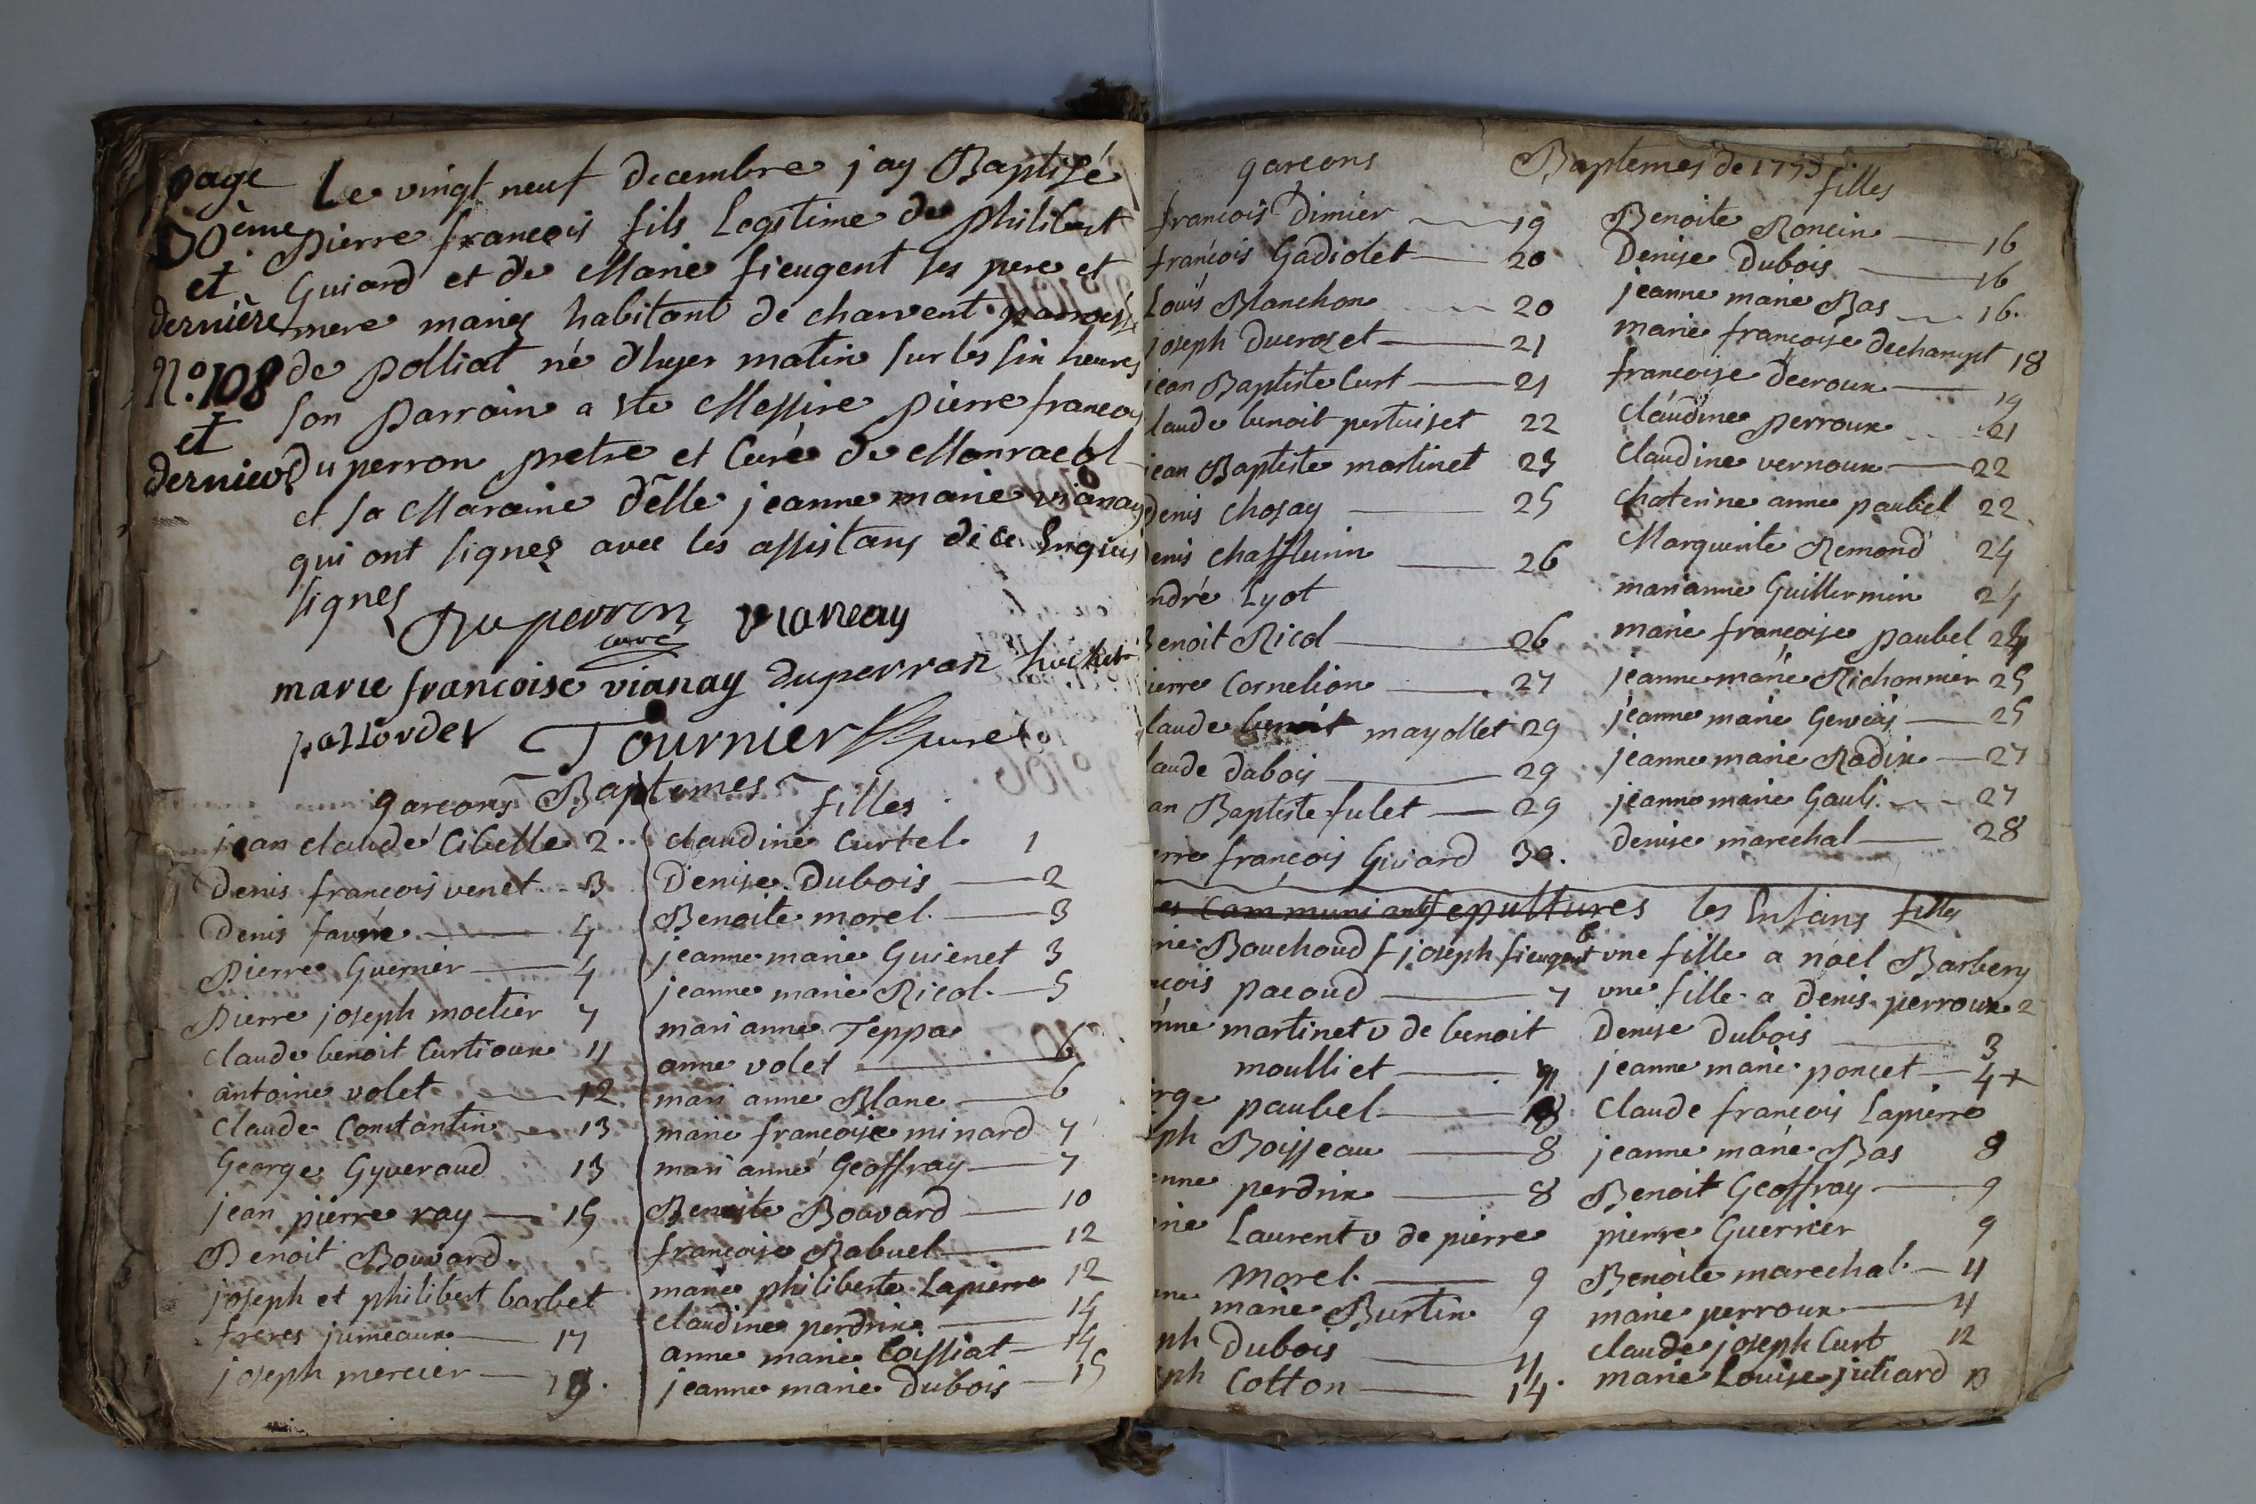 page
30ème
et
dernière
N.º 108
et
dernier
Le vingt neuf decembre j'ay Baptisé
Pierre françois fils Legitime de Philibert
Guiard et de Marie fieugent ses pere et
mere mariez habitant de charvent parroisse
de Polliat né d'hyer matin sur les six heures
son parrain a ete Messire pierre françois
Du perron pretre et Curé de Monracol
et sa Maraine d'elle jeanne marie vianay
qui ont signez avec les assistans de ce Enquis
signes
Duperron vianay
curé
marie francoise vianay duperron
Tournier
garçons Baptemes filles
jean claude Cibelle 2.
Denis françois venet 3
Denis favre 4
Pierre Guerrier 4
Pierre joseph moctier 7
Claude benoit Curtioux 11
antoine volet 12
Claude Constantin 13
George Gyveraud 13
jean pierre ray 15
Benoit Bouvard
joseph et philibert barbet
freres jumeaux 17
joseph mercier 18.
claudine Curtel 1
Denise Dubois 2
Benoite morel 3
jeanne marie Guienet 3
jeanne marie Ricol 5
mari anne Teppa
anne volet 6
mari anne Blanc 6
marie françoise minard 7
mari anne Geoffray 7
Benoite Bouvard 10
françoise Rabuel 12
marie philiberte Lapierre 12
claudine perdrix 14
anne marie Coissiat 14
jeanne marie Dubois 15
garcons Baptemes de 1753 filles
françois Dimier 19
françois Gadiolet 20
Louis Blanchon 20
joseph Ducrozet 21
jean Baptiste Curt 21
laude benoit pertuiset 22
jean Baptiste martinet 23
Denis Chosay 25
Denis Chafflurin 26
ndré Lyot
Benoit Ricol 26
ierre Cornelion 27
laude benoit mayollet 29
laude dabois 29
an Baptiste fulet 29
erre françois Guiard 30.
Benoite Roncin 16
Denise Dubois 16
jeanne marie Bas 16.
marie françoise dechampt 18
françoise decroux 19
claudine perroux 21
claudine vernoux 22
chaterine anne paubel 22
Marguerite Remond 24
marianne Guillermin 24
marie françoise paubel 24
jeanne marie Richonnier 25
jeanne marie Gervais 25
jeanne marie Radix 27
jeanne marie Gauli 27
denise marechal 28
es Communiants sepultures les Enfans filles
rie Bouchoud f joseph fieugent 6
ncois pacoud 7
enne martinet v de benoit
moulliet 7
rge paubel 8
ph Boisseau 8
enne perdrix 8
rie Laurent v de pierre
morel 9
marie Burtin 9
ph Dubois 11
ph Cotton 14.
une fille a noel Barbery
une fille a denis perroux 2
Denise Dubois 3
jeanne marie poncet 4+
Claude françois Lapierre
jeanne marie Bas 8
Benoit Geoffray 9
pierre Guerrier 9
Benoite marechal 11
marie perroux 11
claude joseph Curt 12
marie Louise juliard 13